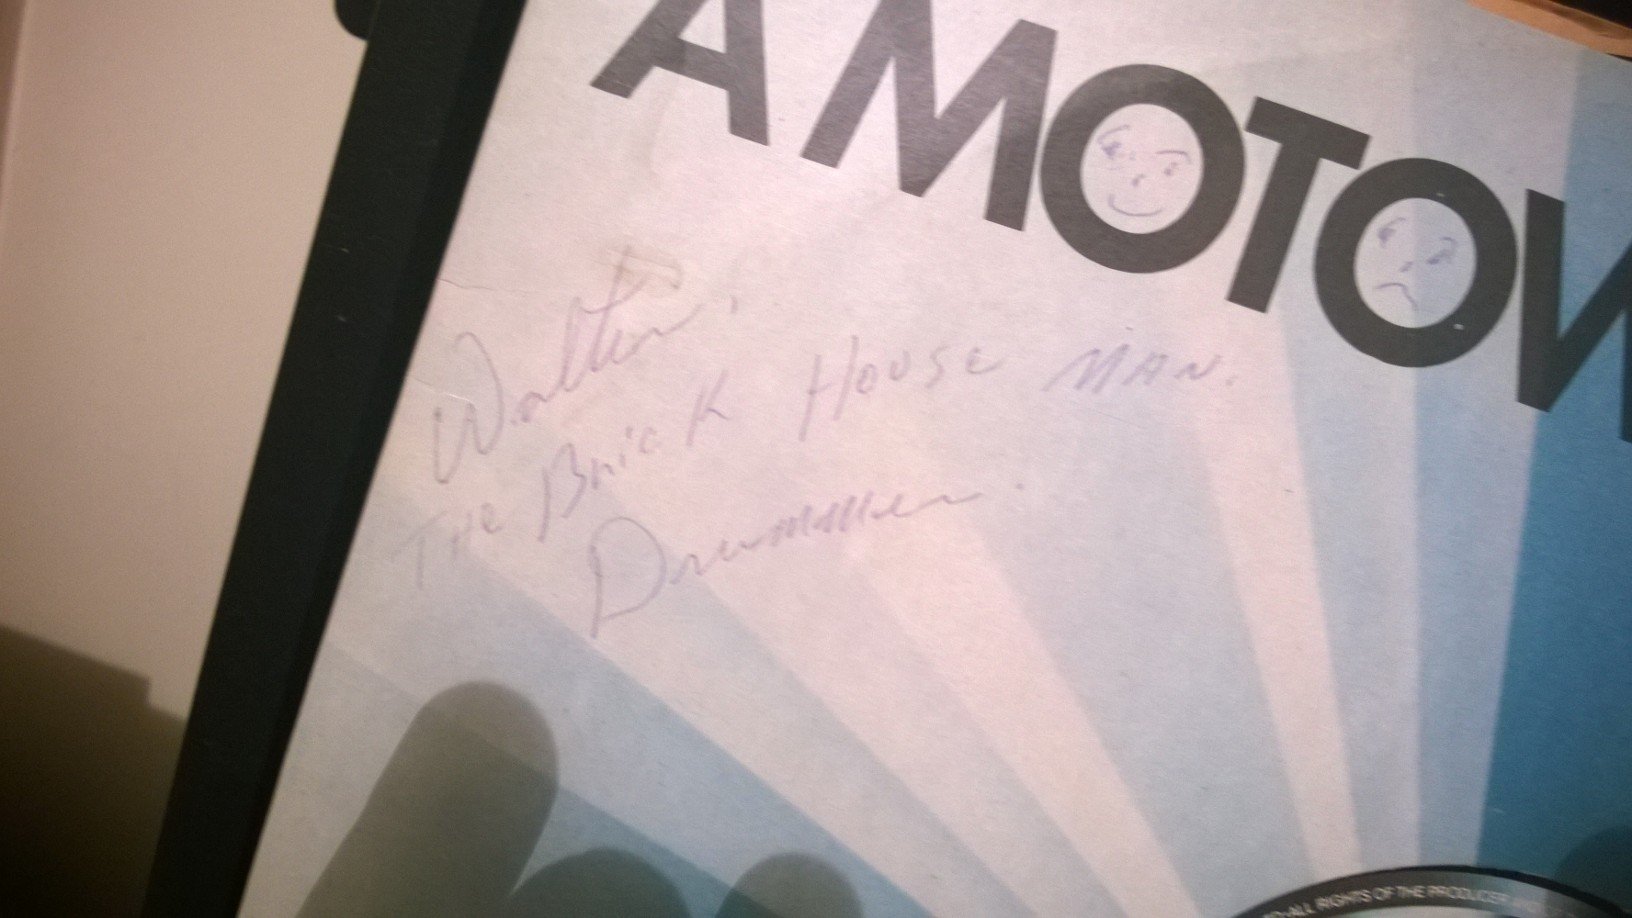 A MOTOW
Walter,
The Brick House Man.
Drummer.
-ALL RIGHTS OF THE PRODUCER AND